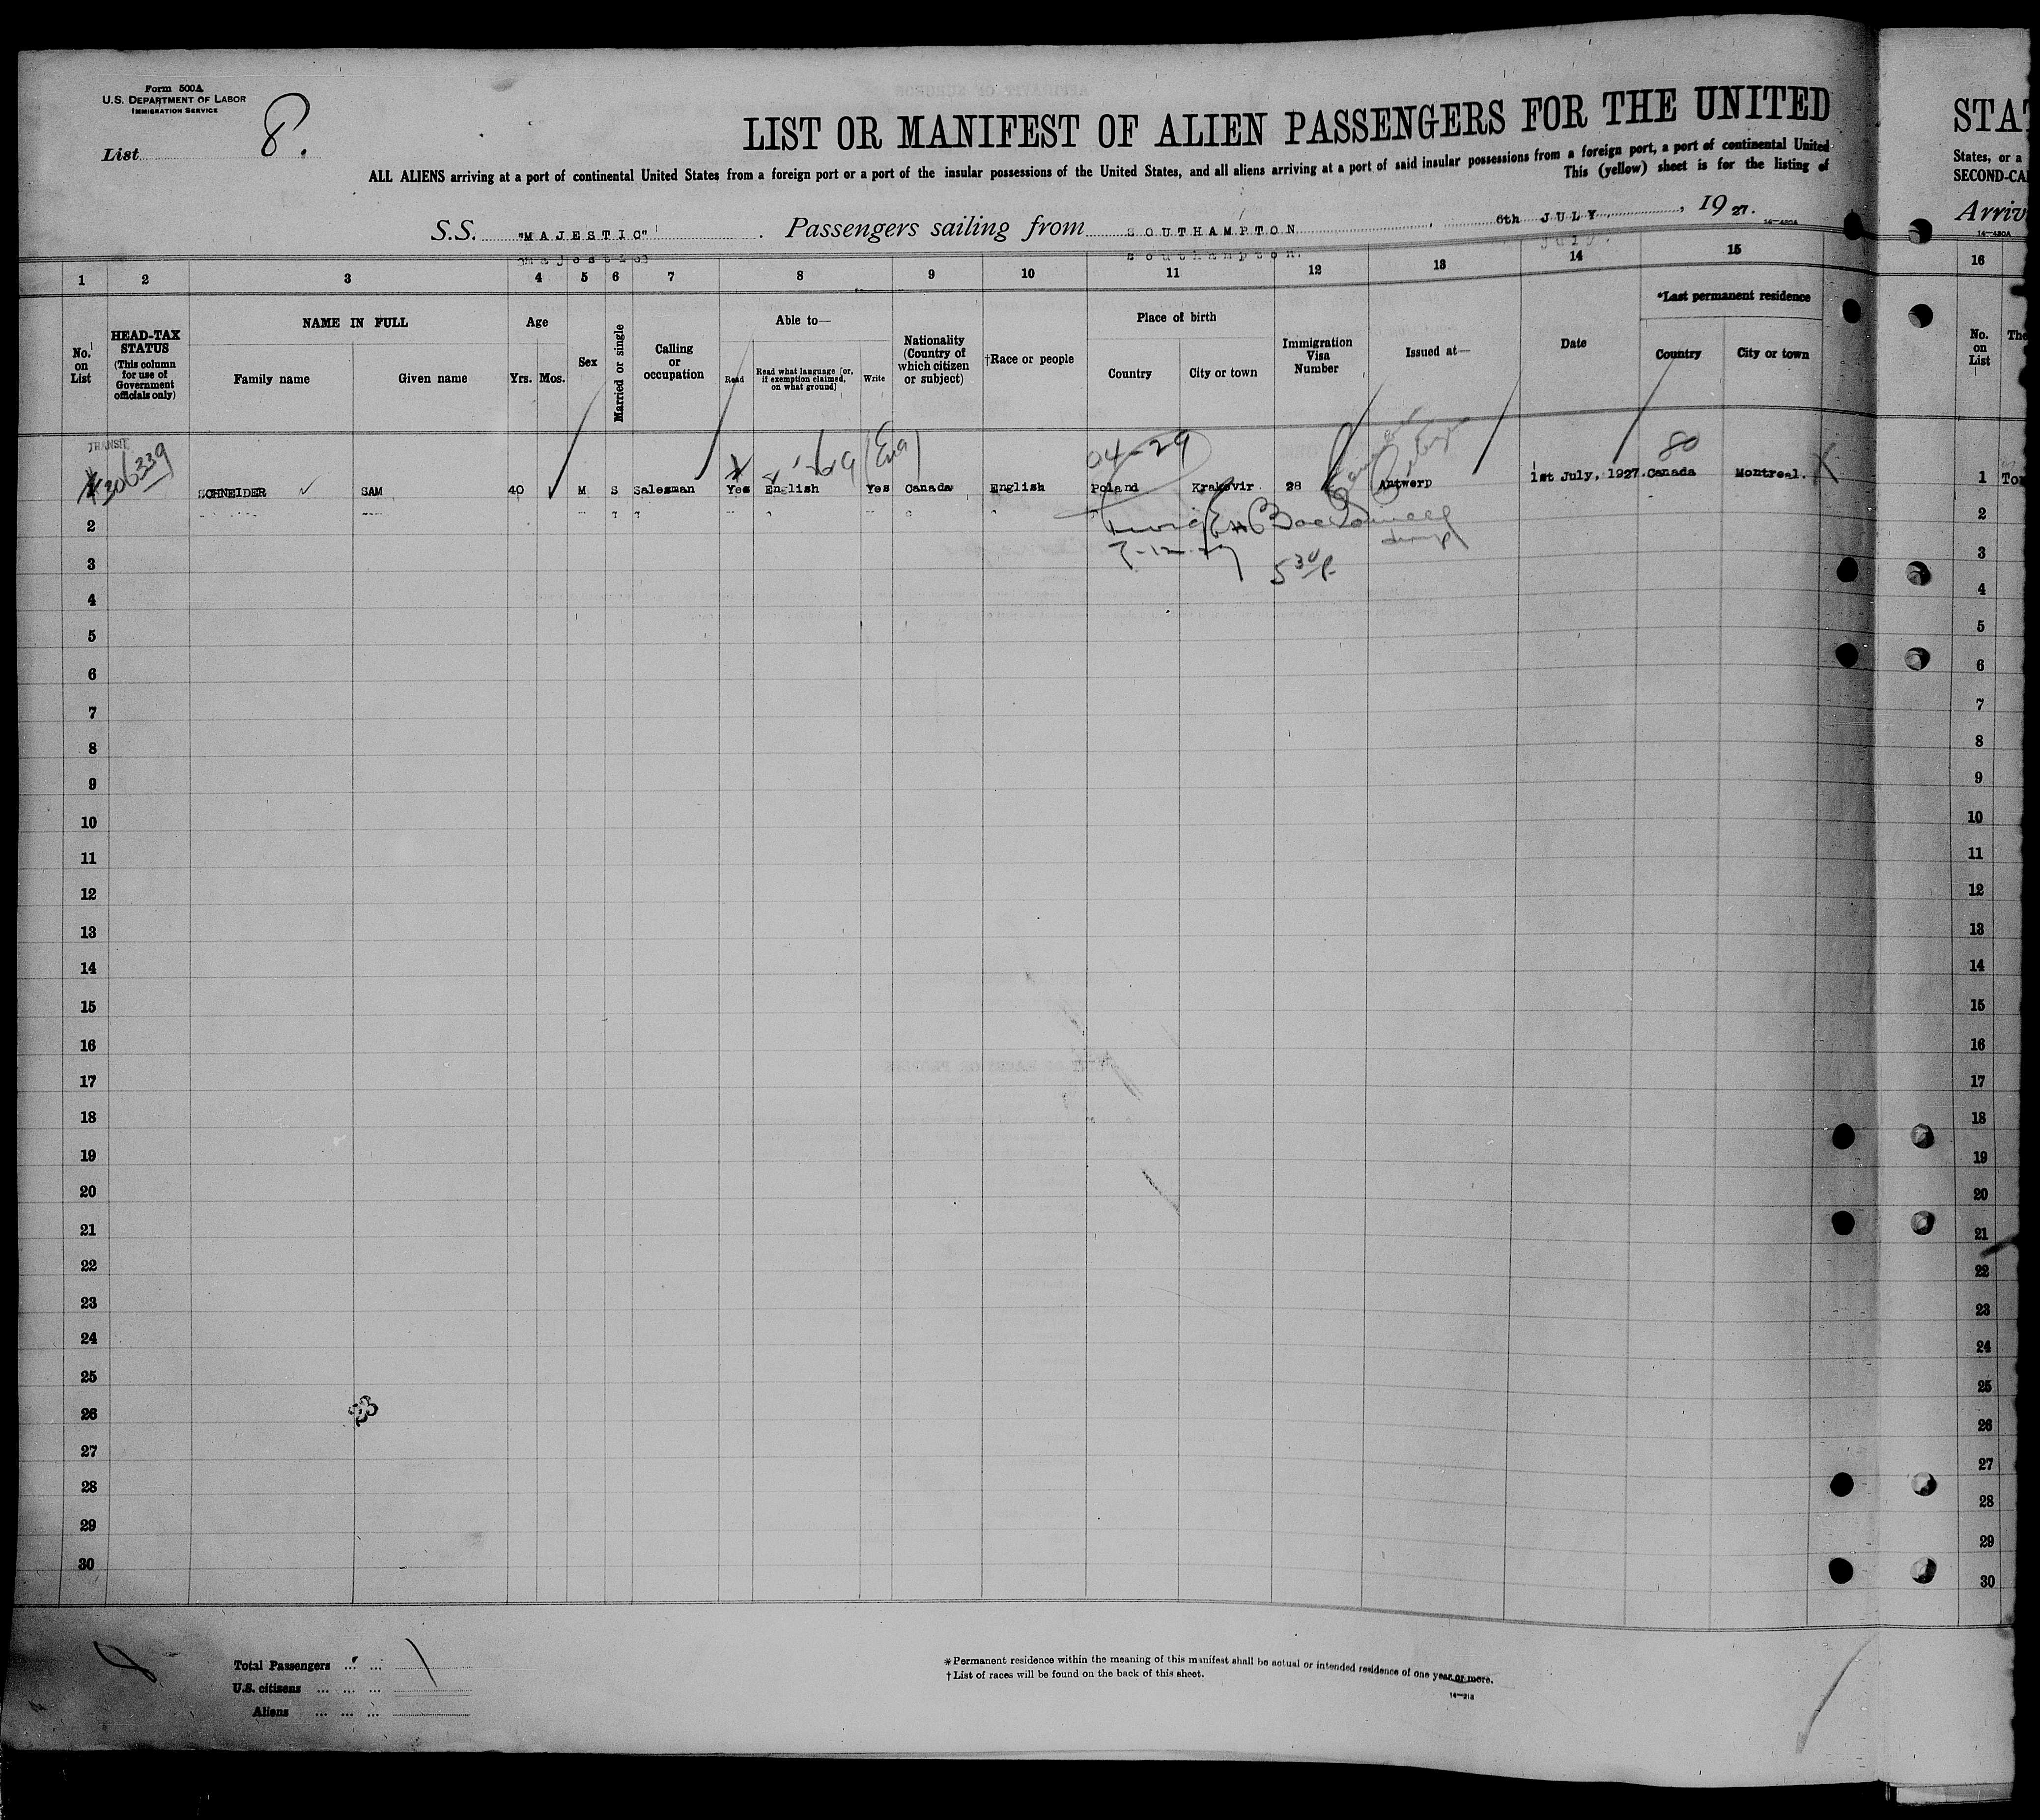 Form 500A
U.S. DEPARTMENT OF LABOR
IMMIGRATION SERVICE
List 8.
LIST OR MANIFEST OF ALIEN PASSENGERS FOR THE UNITED
ALL ALIENS arriving at a port of continental United States from a foreign port or a port of the insular possessions of the United States, and all aliens arriving at a port of said insular possessions from a foreign port, a port of continental United
This (yellow) sheet is for the listing of
S.S. "MAJESTIC" . Passengers sailing from SOUTHAMPTON , 6th JULY , 1927.
14—430A
1 2 3 4 5 6 7 8 9 10 11 12 13 14 15
No. on List
HEAD-TAX STATUS (This column for use of Government officials only)
NAME IN FULL
Family name
Given name
Age
Yrs. Mos.
Sex
Married or single
Calling or occupation
Able to—
Read
Read what language [or, if exemption claimed, on what ground]
Write
Nationality (Country of which citizen or subject)
†Race or people
Place of birth
Country
City or town
Immigration Visa Number
Issued at—
Date
*Last permanent residence
Country
City or town
TRANSIT
306339
04-29
80
SCHNEIDER SAM 40 M S Salesman Yes English Yes Canada English Poland Krakovir 28 Antwerp 1st July, 1927. Canada Montreal.
5 30 P
2
3
4
5
6
7
8
9
10
11
12
13
14
15
16
17
18
19
20
21
22
23
24
25
26
27
28
29
30
Total Passengers ... ...
U.S. citizens ... ... ...
Aliens ... ... ...
*Permanent residence within the meaning of this manifest shall be actual or intended residence of one year or more.
†List of races will be found on the back of this sheet.
14—213
STAT
States, or a
SECOND-CA
Arriv
14—430A
16
No. on List
The
1
2
3
4
5
6
7
8
9
10
11
12
13
14
15
16
17
18
19
20
21
22
23
24
25
26
27
28
29
30